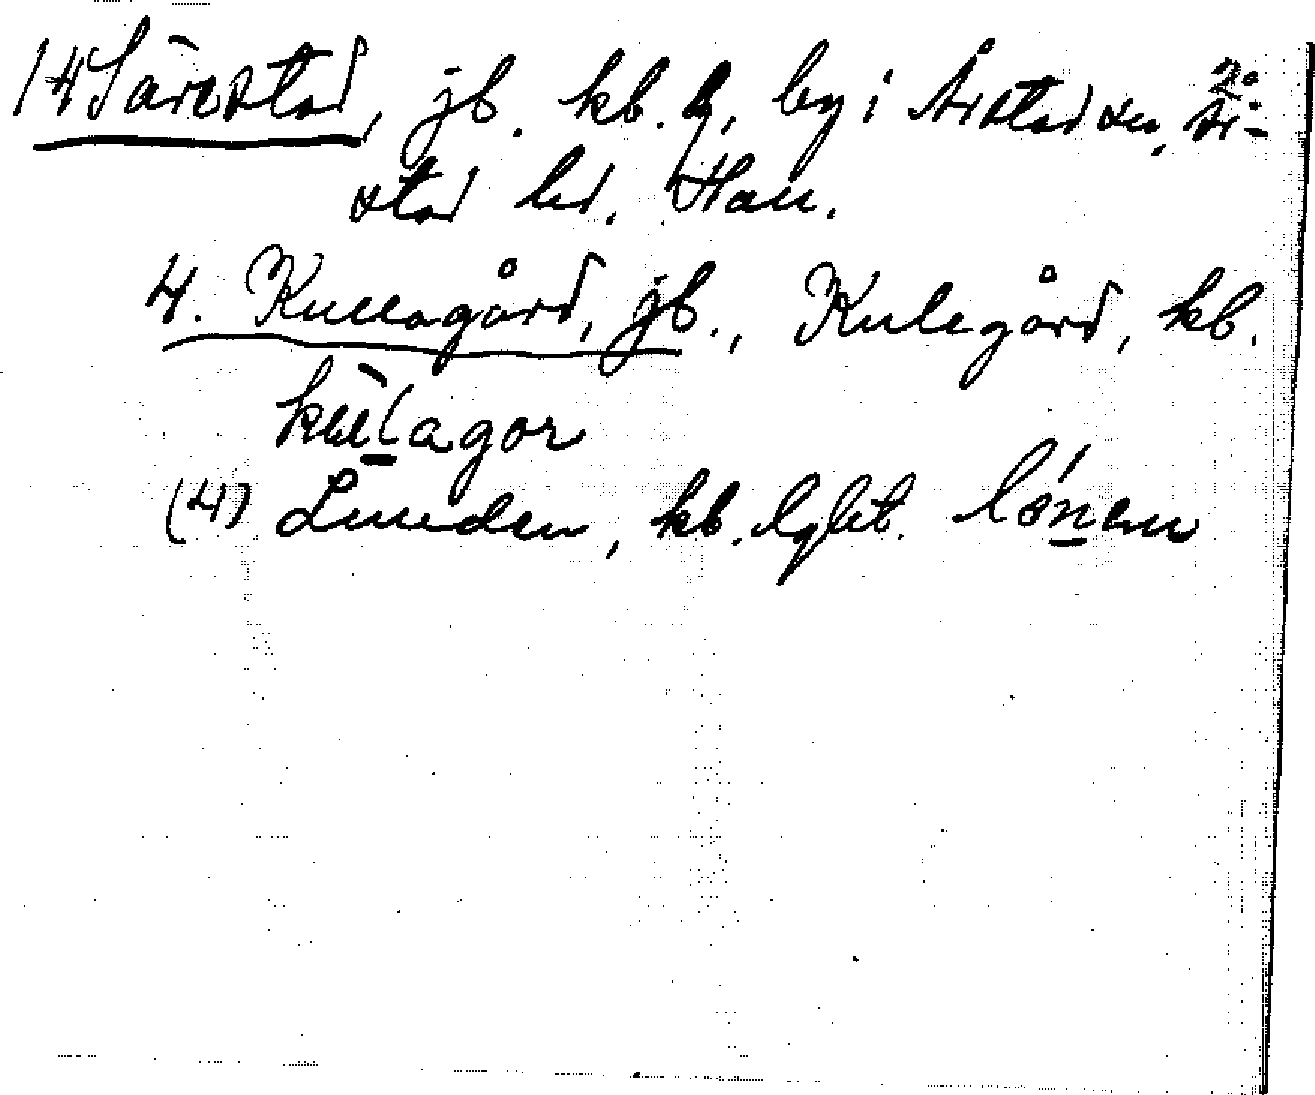 14 Särestad, jb. kb. h, by i Årstad sn, År-
stad hd. Hall.
4. Kullagård, jb., Kulegård, kb.
kullagor
(4) Lunden, kb. lght. lønen